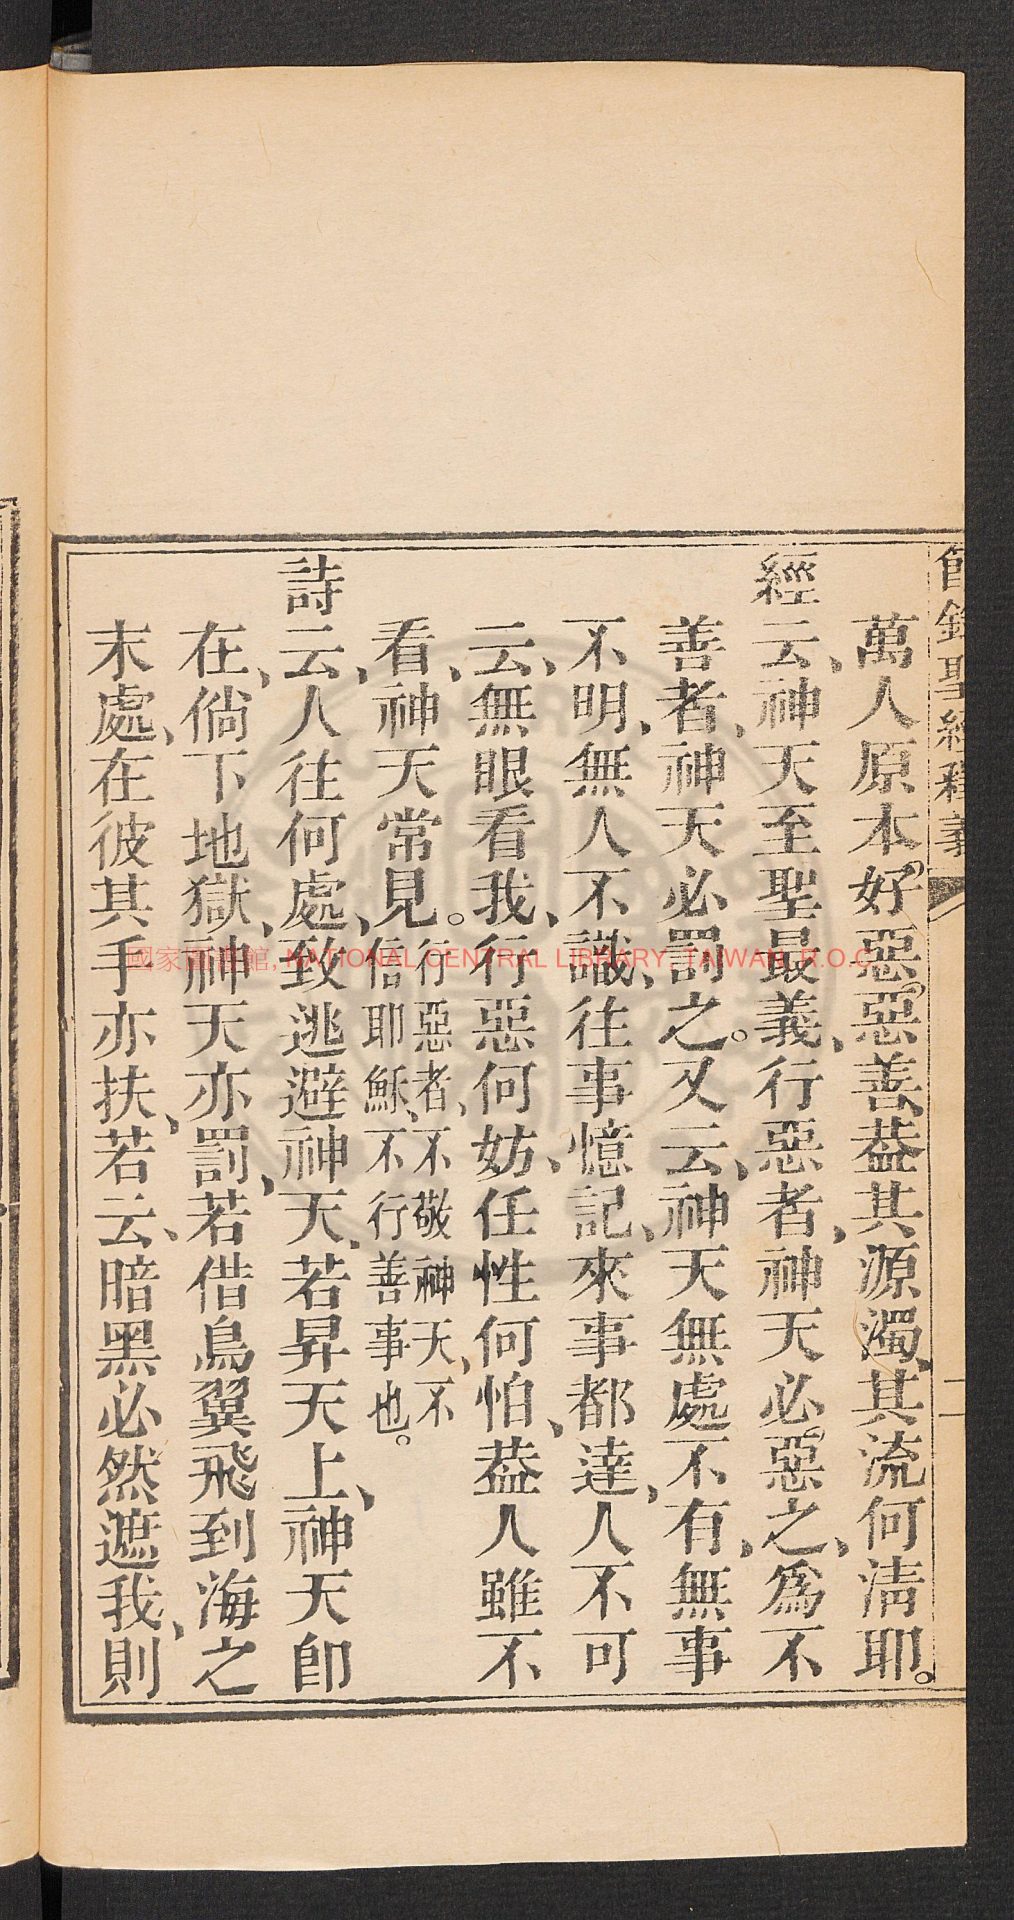 萬人原本好。惡。惡善、葢其源濁、其流何淸耶。
經云、神天至聖最義、行惡者、神天必惡之、爲不
善者、神天必罰之。又云、神天無處不有、無事
不明、無人不識、往事憶記、來事都達、人不可
云、無眼看我、行惡何妨、任性何怕、葢人雖不
看、神天常見。行惡者、不敬神天、不
信耶穌、不行善事也。
詩云、人往何處、致逃避神天、若昇天上、神天卽
在、倘下地獄、神天亦罰、若借鳥翼飛到海之
末處、在彼其手亦扶、若云、暗黑必然遮我、則
國家圖書館, NATIONAL CENTRAL LIBRARY, TAIWAN, R.O.C